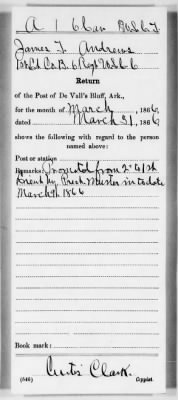 A | 6 Cav
James T. Andrews
1st Lt Co. B. 6 Regt
Return
of the Post of De Vall's Bluff, Ark.,
for the month of March, 1866
dated March 31, 1866
shows the following with regard to the person
named above:
Post or station
Remarks: Promoted from 2d to 1st
Lieut by Presk Muster in to date
March 9th 1866
Book mark:
Curtis Clark.
(646) Copyist.